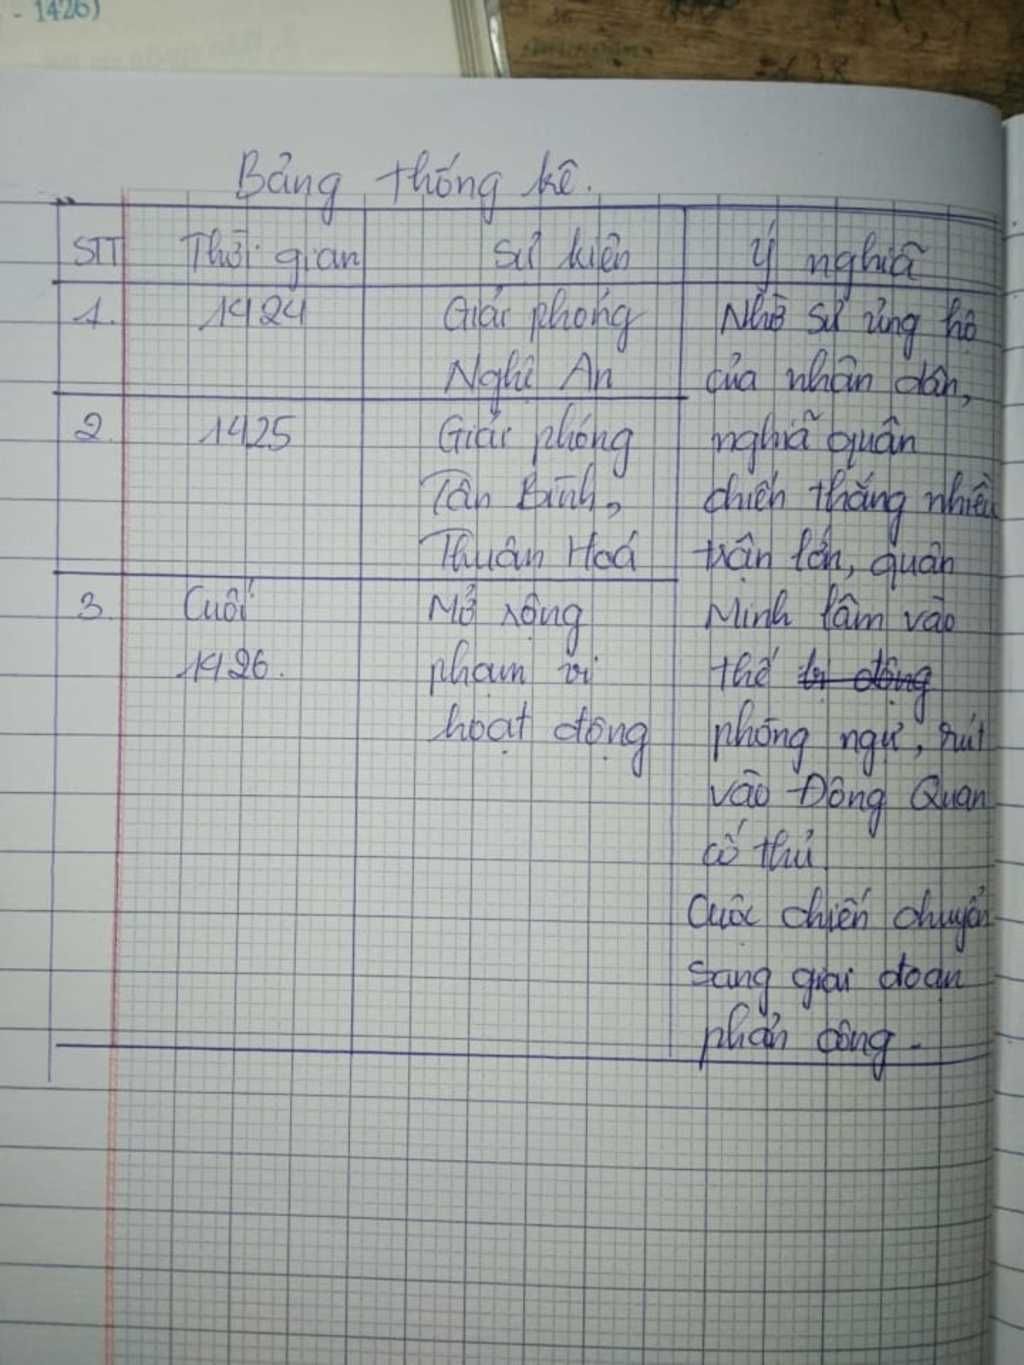 - 1426)
Bảng thống kê.
STT Thời gian Sự kiện Ý nghĩa
1. 1424 Giải phóng Nhờ sự ủng hộ
Nghệ An của nhân dân,
2. 1425 Giải phóng nghĩa quân
Tân Bình, chiến thắng nhiều
Thuận Hoá trận lớn, quân
3. Cuối Mở rộng Minh lâm vào
1426. phạm vi thế bị động
hoạt động phòng ngự, rút
vào Đông Quan
cố thủ.
Cuộc chiến chuyển
sang giai đoạn
phản công.